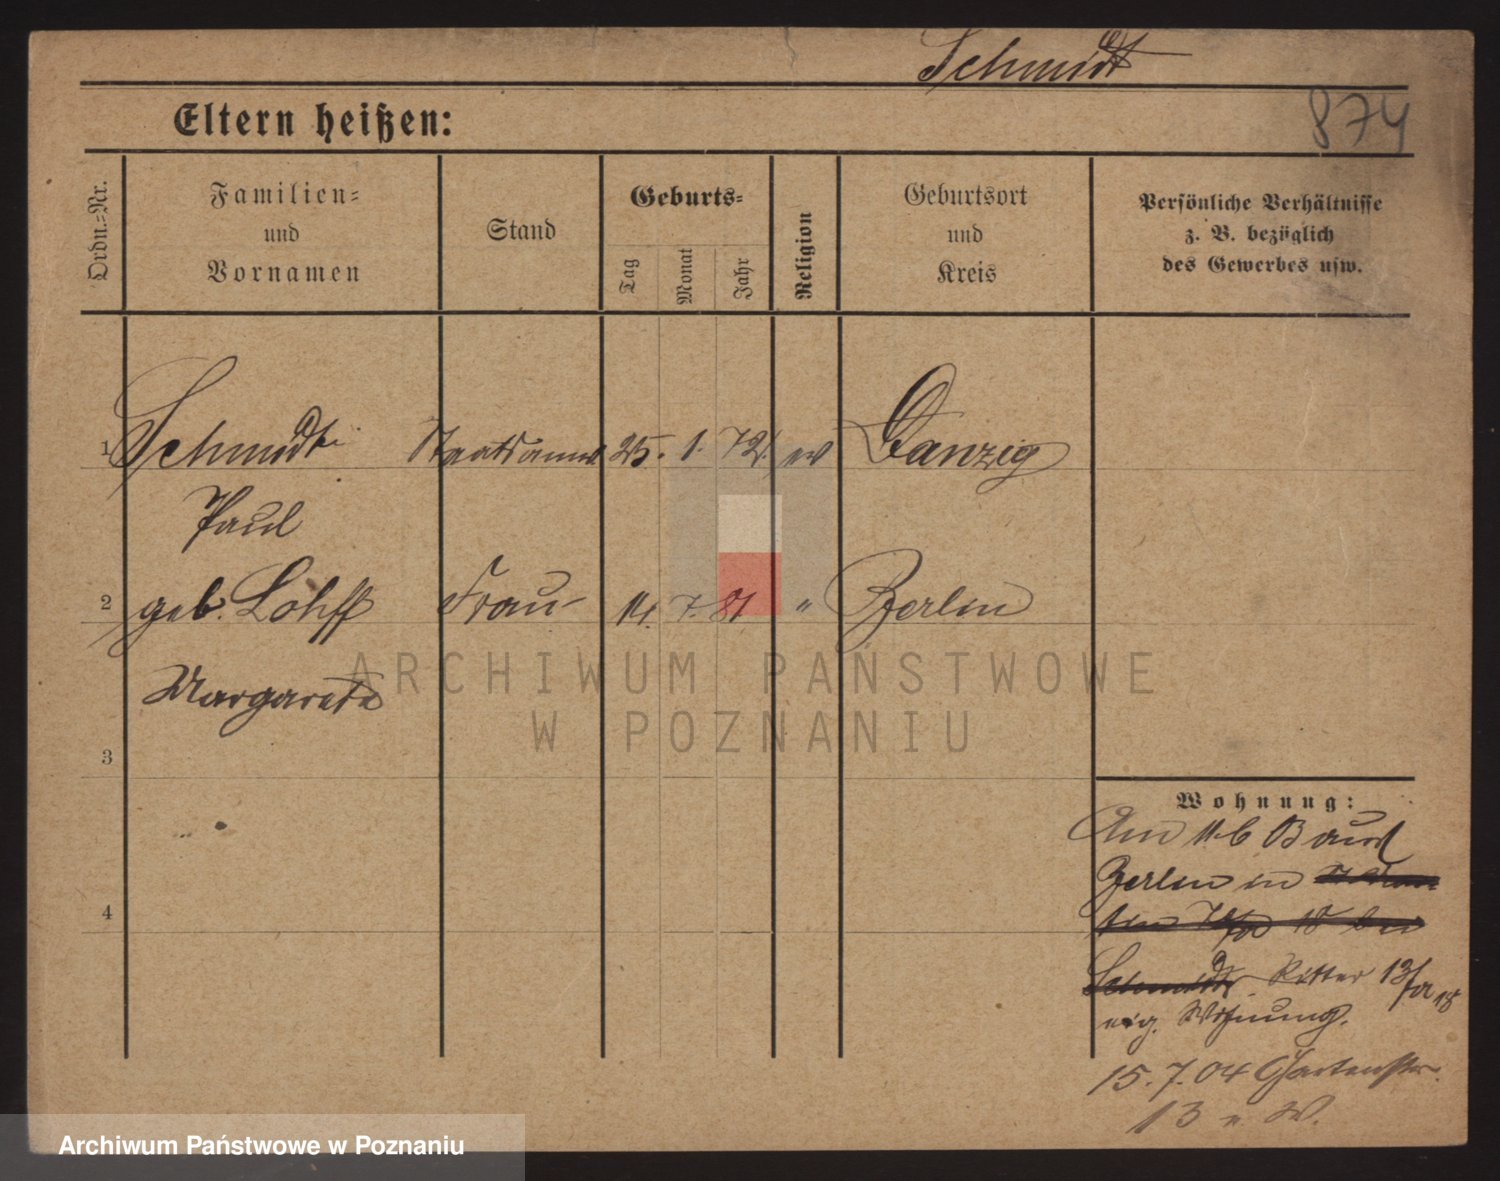 Schmidt
Eltern heißen:
874
Ordn.=Nr.
Familien=
und
Vornamen
Stand
Geburts=
Tag
Monat
Jahr
Religion
Geburtsort
und
Kreis
Persönliche Verhältnisse
z. B. bezüglich
des Gewerbes usw.
1 Schmidt Staatsanw 25. 1. 72. ev Danzig
Paul
2 geb. Lohff Frau 14. 7. 81 " Berlin
Margarete
3
4
Wohnung:
Am
Berlin in
Schmidt Ritter 13
eig. Wohnung.
15. 7. 04 Gartenstr.
13 e. W.
ARCHIWUM PAŃSTWOWE
W POZNANIU
Archiwum Państwowe w Poznaniu